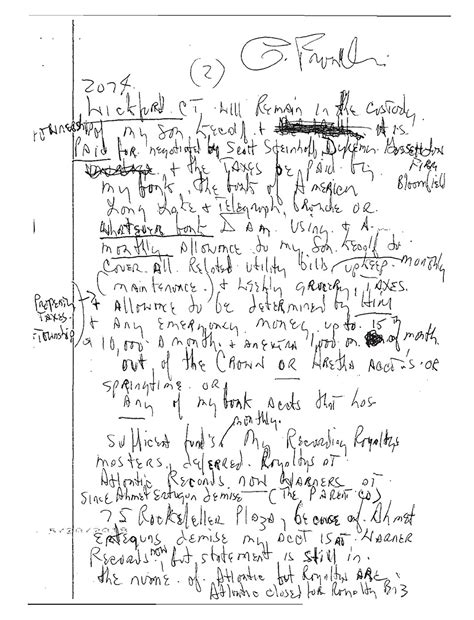 (2)
2074
Wickford CT. Will Remain in the Custody
of my Son Kecalf +
Paid for. negotiated by Scott Steinhoff, Bassett
+ the TAXES be PAID by Firm
my bank. the bank of America Bloomfield
Long Lake + Telegraph, OR
Whatever bank I Am Using + A
monthly Allowance to my Son Kecalf to
COVER All Related utility bills, upkeep. monthly
(maintenance.) + Weekly grocery, TAXES.
Property + Allowance to be determined by Him
TAXES. + Any emergency money, up to 15
Township 10,000 A month + AN EXTRA 1,000 ON of month
out of the Crown OR Aretha Acct's. OR
SPRINGTIME OR
Any of my bank Accts that has
monthly.
Sufficient funds My Recording Royaltys
masters, deferred Royaltys at
Atlantic Records. NOW WARNERS at
Since Ahmet Ertegun demise (THE PARENT CO)
75 Rockefeller Plaza, because of Ahmet
Erteguns demise my Acct is AT WARNER
Records now, but statement is still in
the name of Atlantic but Royaltys ARE
Atlantic closed for Royalty Biz